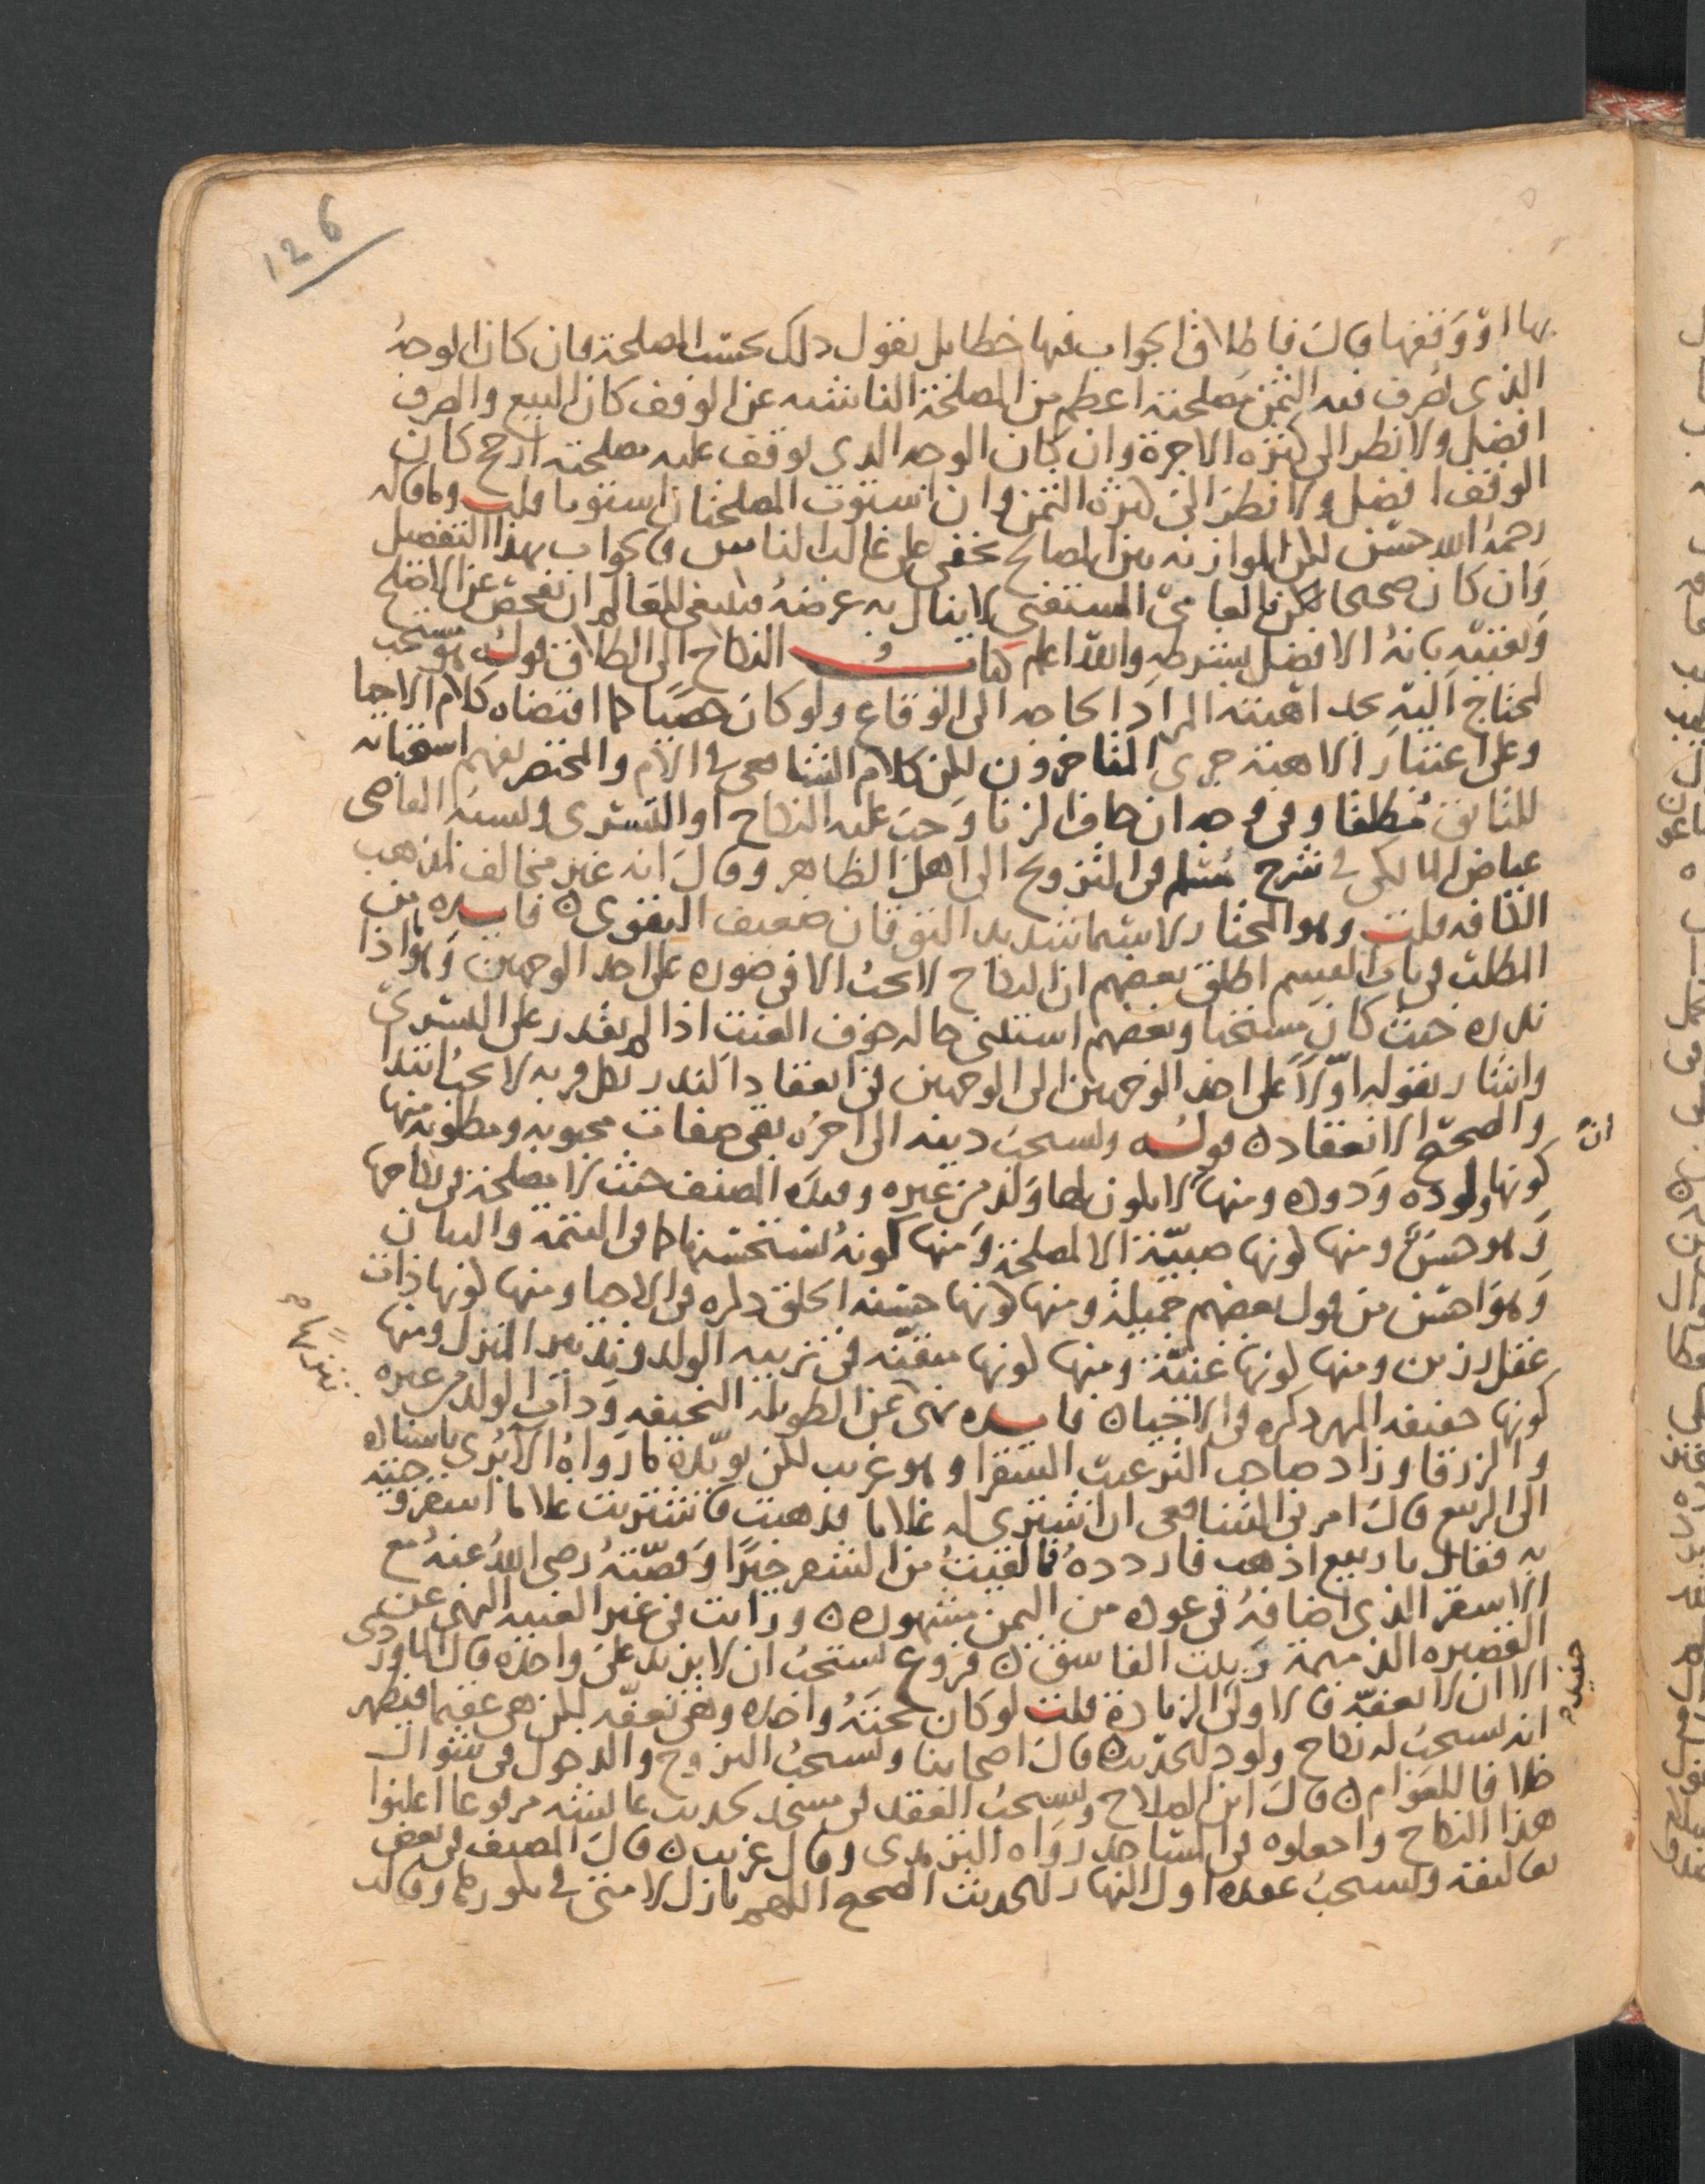 126
بها او وقفها قال فاطلاق الجواب فيها خطا بل نقول ذلك بحسب المصلحة فان كان الوجه
الذي يصرف فيه الثمن مصلحته اعظم من المصلحة الناشئه عن الوقف كان البيع والصرف
افضل ولا نظر الى كثره الاجرة وان كان الوجه الذي يوقف عليه مصلحته ارجح كان
الوقف افضل ولا نظر الى كثرة الثمن وان استوت المصلحتان استويا قلت وما قاله
رحمه الله حسن لكن الموازنه بين المصالح تخفى على غالب الناس فالجواب بهذا التفصيل
وان كان صحيحا لكن العامي المستفتي لا ينال به غرضه فينبغي للعالم ان يفحص عن الاصلح
ويفتيه بانه الافضل بشرطه والله اعلم كتاب النكاح الى الطلاق قوله هو مستحب
لمحتاج اليه يجد اهبته المراد الحاجه الى الوقاع ولو كان خصيا كما اقتضاه كلام الاحيا
وعلى اعتبار الاهبة جرى المتاخرون لكن كلام الشافعي في الام والمختصر يفهم استحبابه
للتائق مطلقا وفي وجه ان خاف الزنا وجب عليه النكاح او التسري ونسبه القاضي
عياض المالكي في شرح مسلم في التزويج الى اهل الظاهر وقال انه غير مخالف لمذهب
الكافه قلت وهو المختار لا سيما شديد التوقان ضعيف التقوى فايده من
المطلب في باب القسم اطلق بعضهم ان النكاح لا يجب الا في صوره على احد الوجهين وهو اذا
نذره حيث كان مستحبا وبعضهم استثنى حاله خوف العنت اذا لم يقدر على التسري
واشار بقوله اولا على احد الوجهين الى الوجهين في انعقاد النذر بكل قربه لا يجب ابتدا
والصحيح الانعقاد قوله ويستحب دينه الى اخره بقي صفات محبوبه ومطلوبه منها
كونها ولوده ودوده ومنها ان لا يكون لها ولد من غيره وقيده المصنف حيث لا مصلحة في نكاحها
وهو حسن ومنها كونها صبيّة الا لمصلحة ومنها كونه يستحسنها كما في التتمة والبيان
وهو احسن من قول بعضهم جميلة ومنها كونها حسنه الخلق ذكره في الاحيا ومنها كونها ذات
عقل رزين ومنها كونها غنيّة ومنها كونها متقنه في تربيه الولد وتدبير المنزل ومنها
كونها خفيفه المهر ذكره في الاحيا فايده نهى عن الطويله النحيفه وذات الولد من غيره
والزرقا وزاد صاحب الترغيب الشقرا وهو غريب لكن يويده ما رواه الآبري باسناده
الى الربيع قال امرني الشافعي ان اشتري له غلاما فذهبت فاشتريت غلاما اشقر وجيته
به فقال يا ربيع اذهب فاردده فما لقيت من اشقر خيرا وقصته رضي الله عنه مع
الاشقر الذي اضافه في عوده من اليمن مشهوره ورايت في غير الغنيه النهي عن
القصيره الذميمة وبنت الفاسق فروع يستحب ان لا يزيد على واحده قال الماوردي
الا ان لا تعفه فالاولى الزيادة قلت لو كان تحته واحده وهي تعفّه لكن هي عقيم فيظهر
انه يستحب له نكاح ولود للحديث قال اصحابنا ويستحب التزوج والدخول في شوال
خلافا للعوام قال ابن الصلاح ويستحب العقد في مسجد لحديث عايشه مرفوعا اعلنوا
هذا النكاح واجعلوه في المساجد رواه الترمذي وقال غريب قال المصنف في بعض
تعاليقه ويستحب عقده اول النهار للحديث الصحيح اللهم بارك لامتي في بكورها وقال